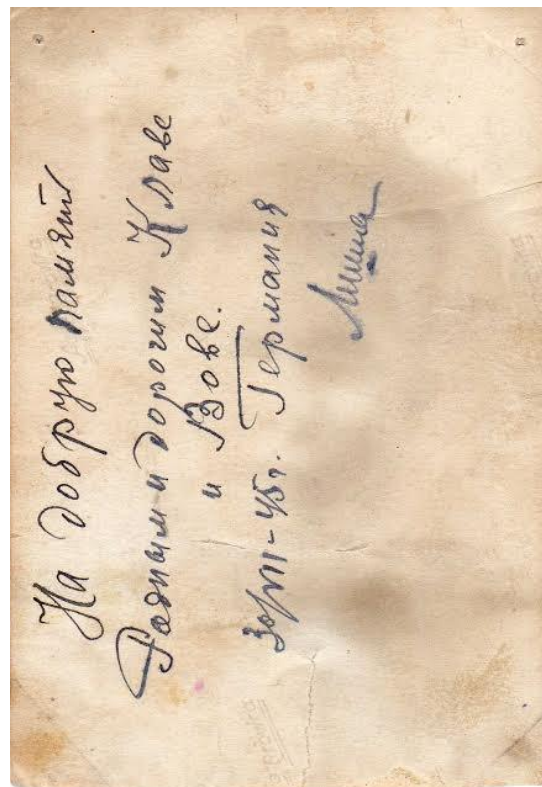 На добрую память
Родным и дорогим Клаве
и Вове.
45г. Германия